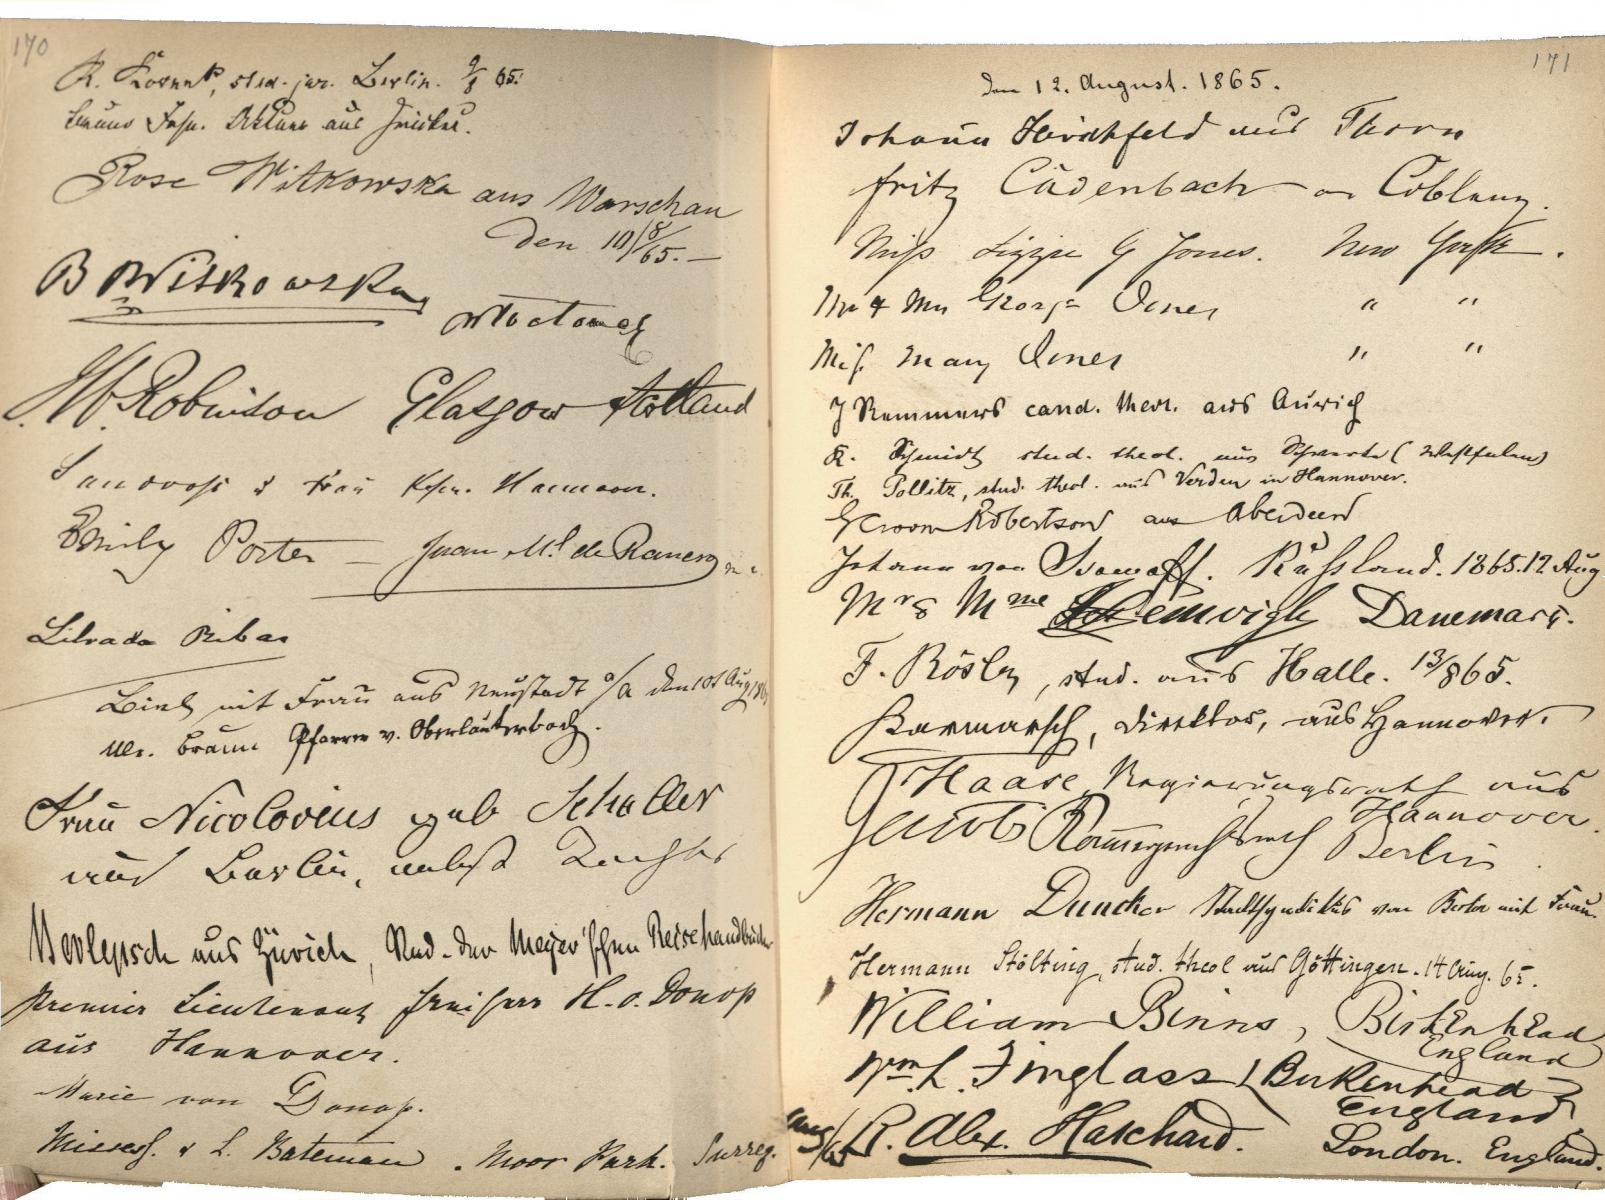 170
stud. jur. Berlin. 9/8 65.
aus
Rose Witkowska aus Warschau
den 10/8/65.
B Witkowska
Robinson Glasgow Scotland
& Frau Hannover.
Emily Porter — Juan Ml de
Librada Ribas
mit Frau aus Neustadt a/d den 10t Aug
Braun Pfarrer v. Oberlauterbach.
Frau Nicolovius geb Schaller
aus Berlin, nebst Tochter
Berlepsch aus Zürich, Red. der Meyer'schen Reisehandbücher
Premier Lieutenant Freiherr H. v. Donop
aus Hannover.
Marie von Donop.
Misses J. & L. Bateman. Moor Park. Surrey.
171
Den 12. August. 1865.
Johann Hirschfeld aus Thorn
Fritz Cadenbach Coblenz.
Miss Lizzie G Jones. New York.
Mr & Mrs George Jones " "
Miss Mary Jones " "
J Remmers cand. theol. aus Aurich
K. Schmidt stud. theol. aus Schwerte (Westfalen)
Th. Pollitz, stud. theol. aus Verden in Hannover.
Croom Robertson aus Aberdeen
Johann von Russland. 1865. 12 Aug
Mr & Mme Schemvigh Danemark.
F. Rösler, stud. aus Halle. 13/8 65.
Karmarsch, Direktor, aus Hannover.
Haase, Regierungsrath aus
Hannover.
Jacobi Kammergerichtsrath Berlin
Hermann Duncker Stadtsyndikus von Berlin mit Frau.
Hermann Stölting, stud. theol aus Göttingen. 14 Aug. 65.
William Binns, Birkenhead
England
Wm. L. Finglass Birkenhead
England
Aug/65 R. Alex. Hatchard. London. England.